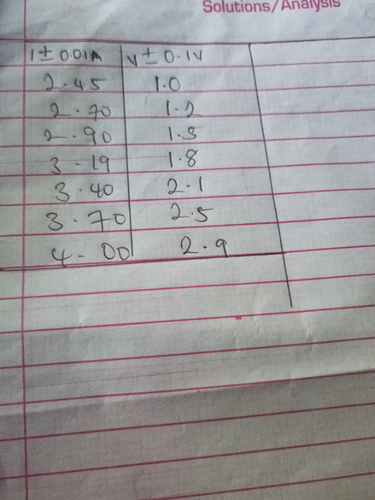 Solutions/Analysis
I ± 0.01A V ± 0.1V
2.45 1.0
2.70 1.2
2.90 1.5
3.19 1.8
3.40 2.1
3.70 2.5
4.00 2.9